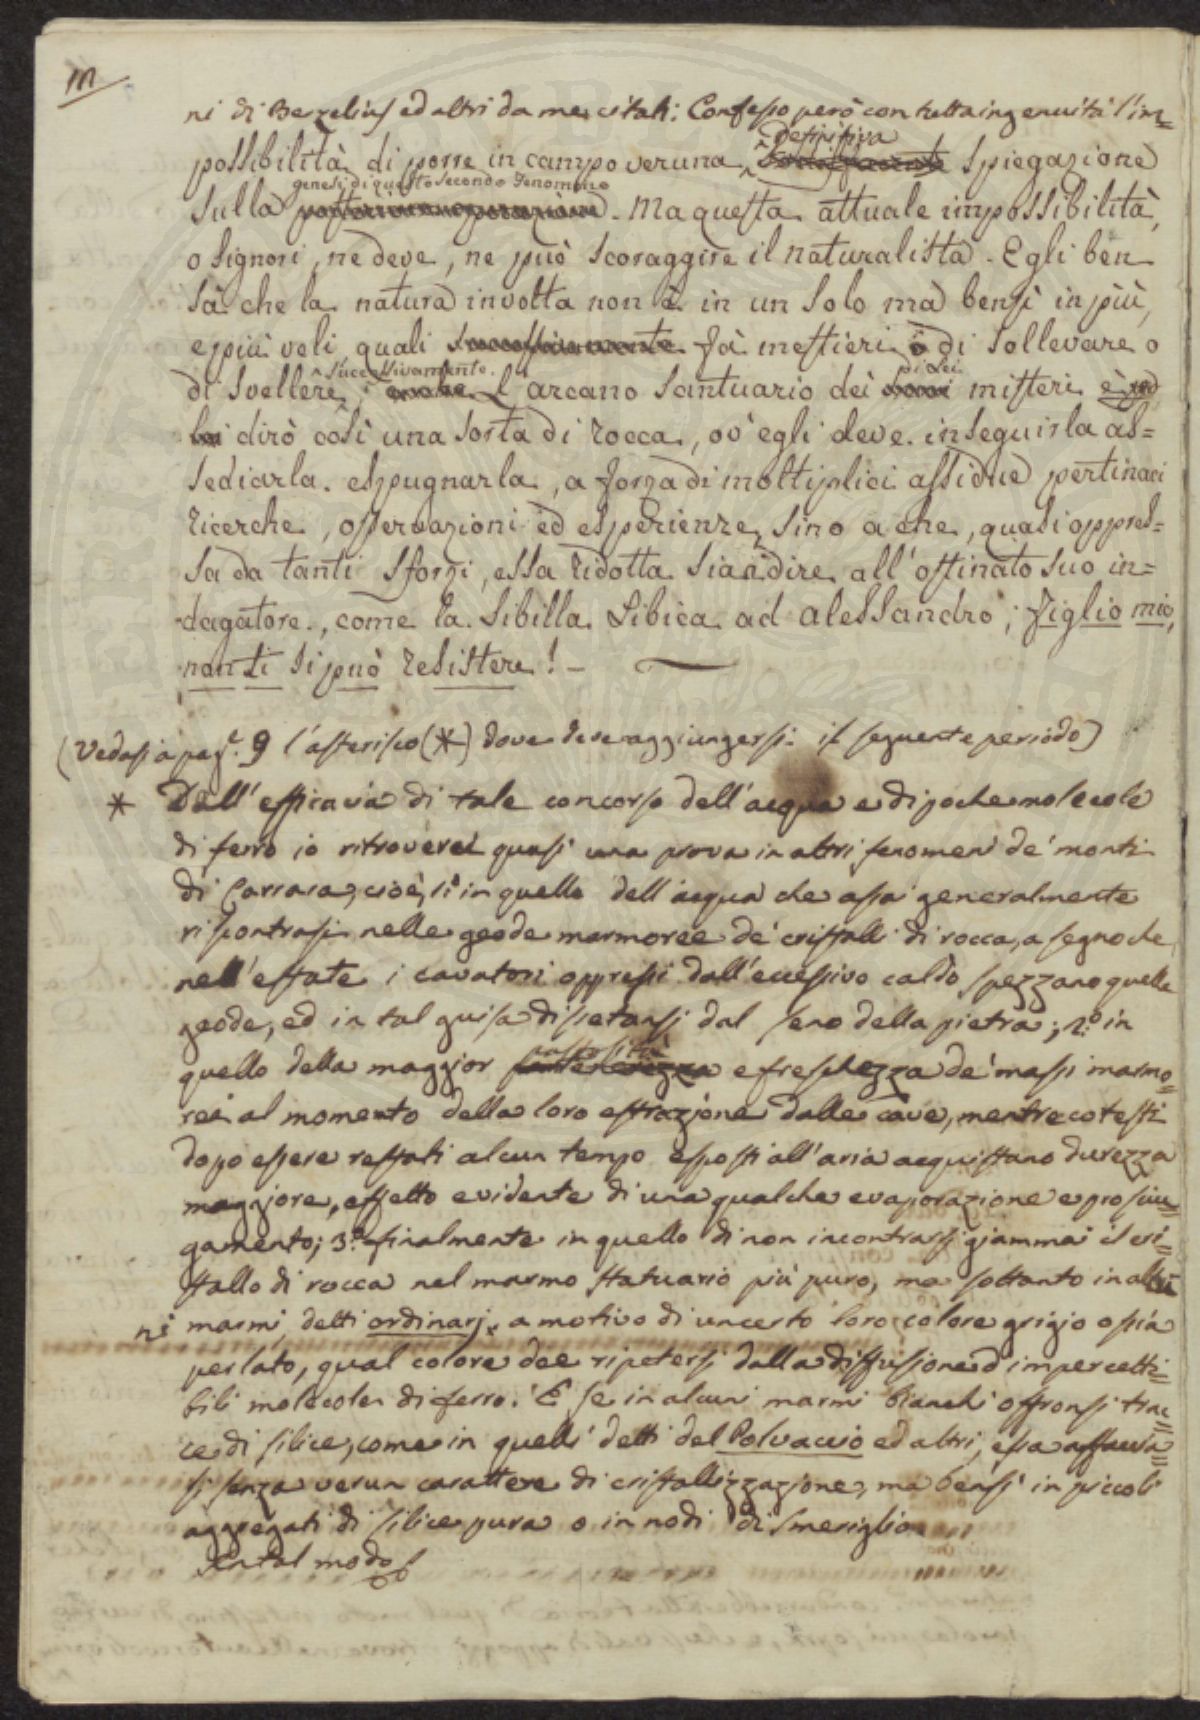 m
ni di Berzelius ed altri da me citati: Confesso però con tutta ingenuità l'im=
definitiva
possibilità di porre in campo veruna spiegazione
genesi di questo secondo fenomeno
sulla. Ma questa attuale impossibilità,
o Signori, ne deve, ne può scoraggire il naturalista. Egli ben
sà che la natura involta non è in un solo ma bensì in più,
e più veli, quali successivamente fà mestieri o di sollevare o
successivamente. di lei
di svellere, l'arcano santuario dei misteri è
dirò così una sorta di rocca, ov'egli deve inseguirla as=
sediarla, espugnarla, a forza di moltiplici assidue pertinaci
ricerche, osservazioni ed esperienze, sino a che, quasi oppres=
sa da tanti sforzi, essa ridotta sia a dire all'ostinato suo in=
dagatore, come la Sibilla Libica ad Alessandro; figlio mio,
non ti si può resistere! —
(Vedasi a pag. 9 l'asterisco (*) dove deve aggiungersi il seguente periodo)
* Dall'efficavia di tale concorso dell'acqua e di poche molecole
di ferro io ritroverei quasi una prova in altri fenomeni de' monti
di Carrara, cioè, 1° in quello dell'acqua che assai generalmente
riscontrasi nelle geode marmoree de' cristalli di rocca, a segno che
nell'estate i cavatori oppressi dall'eccessivo caldo spezzano quelle
geode, ed in tal guisa dissetansi dal seno della pietra; 2.° in
pastosità
quello della maggior e freschezza de' massi marmo=
rei al momento della loro estrazione dalle cave, mentre cotesti
dopo essere restati alcun tempo esposti all'aria acquistano durezza
maggiore, effetto evidente di una qualche evaporazione e prosciu=
gamento; 3.° finalmente in quello di non incontrarsi giammai il cri=
stallo di rocca nel marmo statuario più puro, ma soltanto in altri
ni marmi, detti ordinarj, a motivo di un certo loro colore grigio ossia
perlato, qual colore dee ripetersi dalla diffusione d'impercetti=
bili molecole di ferro. E se in alcuni marmi bianchi offronsi trac=
ce di silice, come in quelli detti del Polvaccio ed altri, essa affaccia=
si senza verun carattere di cristallizzazione, ma bensì in piccoli
aggregati di silice pura o in nodi di Smeriglio
In tal modo